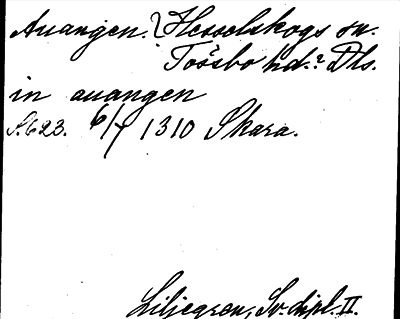 Auangen. { Hesselskogs sn.
Tössbo hd.? Dls.
in auangen
S. 623. 6/7 1310 Skara.
Liljegren, Sv. dipl. II.